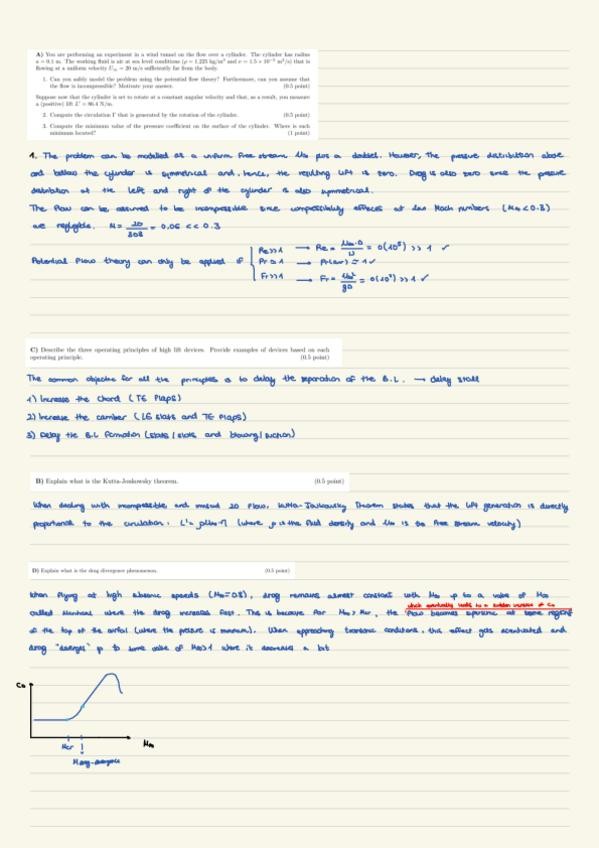 A) You are performing an experiment in a wind tunnel on the flow over a cylinder. The cylinder has radius
a = 0.1 m. The working fluid is air at sea level conditions (ρ = 1.225 kg/m³ and ν = 1.5 × 10⁻⁵ m²/s) that is
flowing at a uniform velocity U∞ = 20 m/s sufficiently far from the body.
1. Can you safely model the problem using the potential flow theory? Furthermore, can you assume that
the flow is incompressible? Motivate your answer. (0.5 point)
Suppose now that the cylinder is set to rotate at a constant angular velocity and that, as a result, you measure
a (positive) lift L' = 86.4 N/m.
2. Compute the circulation Γ that is generated by the rotation of the cylinder. (0.5 point)
3. Compute the minimum value of the pressure coefficient on the surface of the cylinder. Where is such
minimum located? (1 point)
1. The problem can be modelled as a uniform free stream U∞ plus a doublet. However, the pressure distribution above
and bellow the cylinder is symmetrical and, hence, the resulting lift is zero. Drag is also zero since the pressure
distribution at the left and right of the cylinder is also symmetrical.
The flow can be assumed to be incompressible since compressibility effects at low Mach numbers (M∞ < 0.3)
are negligible. M = 20/303 = 0.06 << 0.3
Potential flow theory can only be applied if
Re >> 1 → Re = U∞·D/ν = O(10⁵) >> 1 ✓
Pr ≈ 1 → Pr(air) ≈ 1 ✓
Fr >> 1 → Fr = U∞²/gD = O(10²) >> 1 ✓
C) Describe the three operating principles of high lift devices. Provide examples of devices based on each
operating principle. (0.5 point)
The common objective for all the principles is to delay the separation of the B.L. → delay stall
1) Increase the chord (TE flaps)
2) Increase the camber (LE slats and TE flaps)
3) Delay the B.L formation (slats/slots and blowing/suction)
B) Explain what is the Kutta-Joukowsky theorem. (0.5 point)
When dealing with incompressible and inviscid 2D flow, Kutta-Joukowsky Theorem states that the lift generation is directly
proportional to the circulation: L' = ρU∞Γ (where ρ is the fluid density and U∞ is the free stream velocity)
D) Explain what is the drag divergence phenomenon. (0.5 point)
When flying at high subsonic speeds (M∞ = 0.8), drag remains almost constant with M∞ up to a value of M∞
which eventually leads to a sudden increase of CD
called Mcritical where the drag increases fast. This is because for M∞ > Mcr, the flow becomes supersonic at some regions
of the top of the airfoil (where the pressure is minimum). When approaching transonic conditions, this effect gets accentuated and
drag "diverges" up to some value of M∞ > 1 where it decreases a bit
CD
Mcr
M∞
Mdrag-divergence